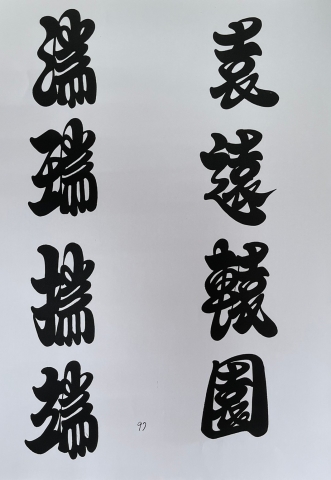 袁
遠
轅
園
湍
瑞
揣
端
97